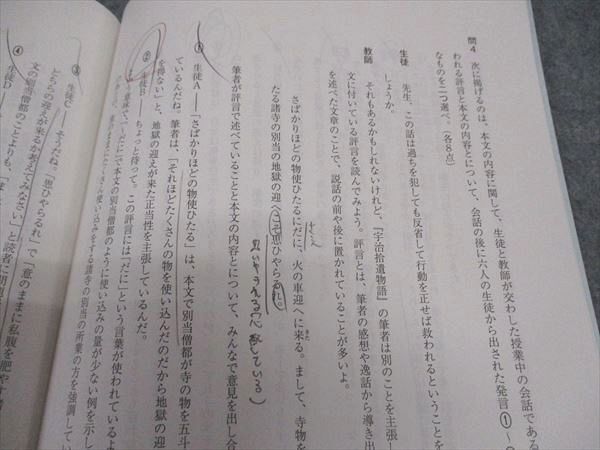 問4 次に掲げるのは、本文の内容に関して、生徒と教師が交わした授業中の会話である
われる評言と本文の内容とについて、会話の後に六人の生徒から出された発言①〜
なものを二つ選べ。(各8点)
生徒 先生、この話は過ちを犯しても反省して行動を正せば救われるということを
しょうか。
教師 それもあるかもしれないけれど、『宇治拾遺物語』の筆者は別のことを主張し
文に付いている評言を読んでみよう。評言とは、筆者の感想や逸話から導き出
を述べた文章のことで、説話の前や後に置かれていることが多いよ。
さばかりほどの物使ひたるにだに、火の車迎へに来る。まして、寺物を
たる諸寺の別当の地獄の迎へこそ思ひやらるれ。
筆者が評言で述べていることと本文の内容とについて、みんなで意見を出し合
① 生徒A――「さばかりほどの物使ひたる」は、本文で別当僧都が寺の物を五斗
ているんだね。筆者は、「それほどたくさんの物を使い込んだのだから地獄の迎
を得ない」と、地獄の迎えが来た正当性を主張しているんだ。
② 生徒B――ちょっと待って。この評言には「だに」という言葉が使われているよ
本文の別当僧都のように使い込みの量が少ない例を示し
使い込みをする諸寺の別当の所業の方を強調してい
③ 生徒C――そうだね。「思ひやらるれ」で
どちらの迎えが来るか考えてみなさい」と読者に
文の別当僧都のことよりも、「意のままに私腹を肥やす
④ 生徒D